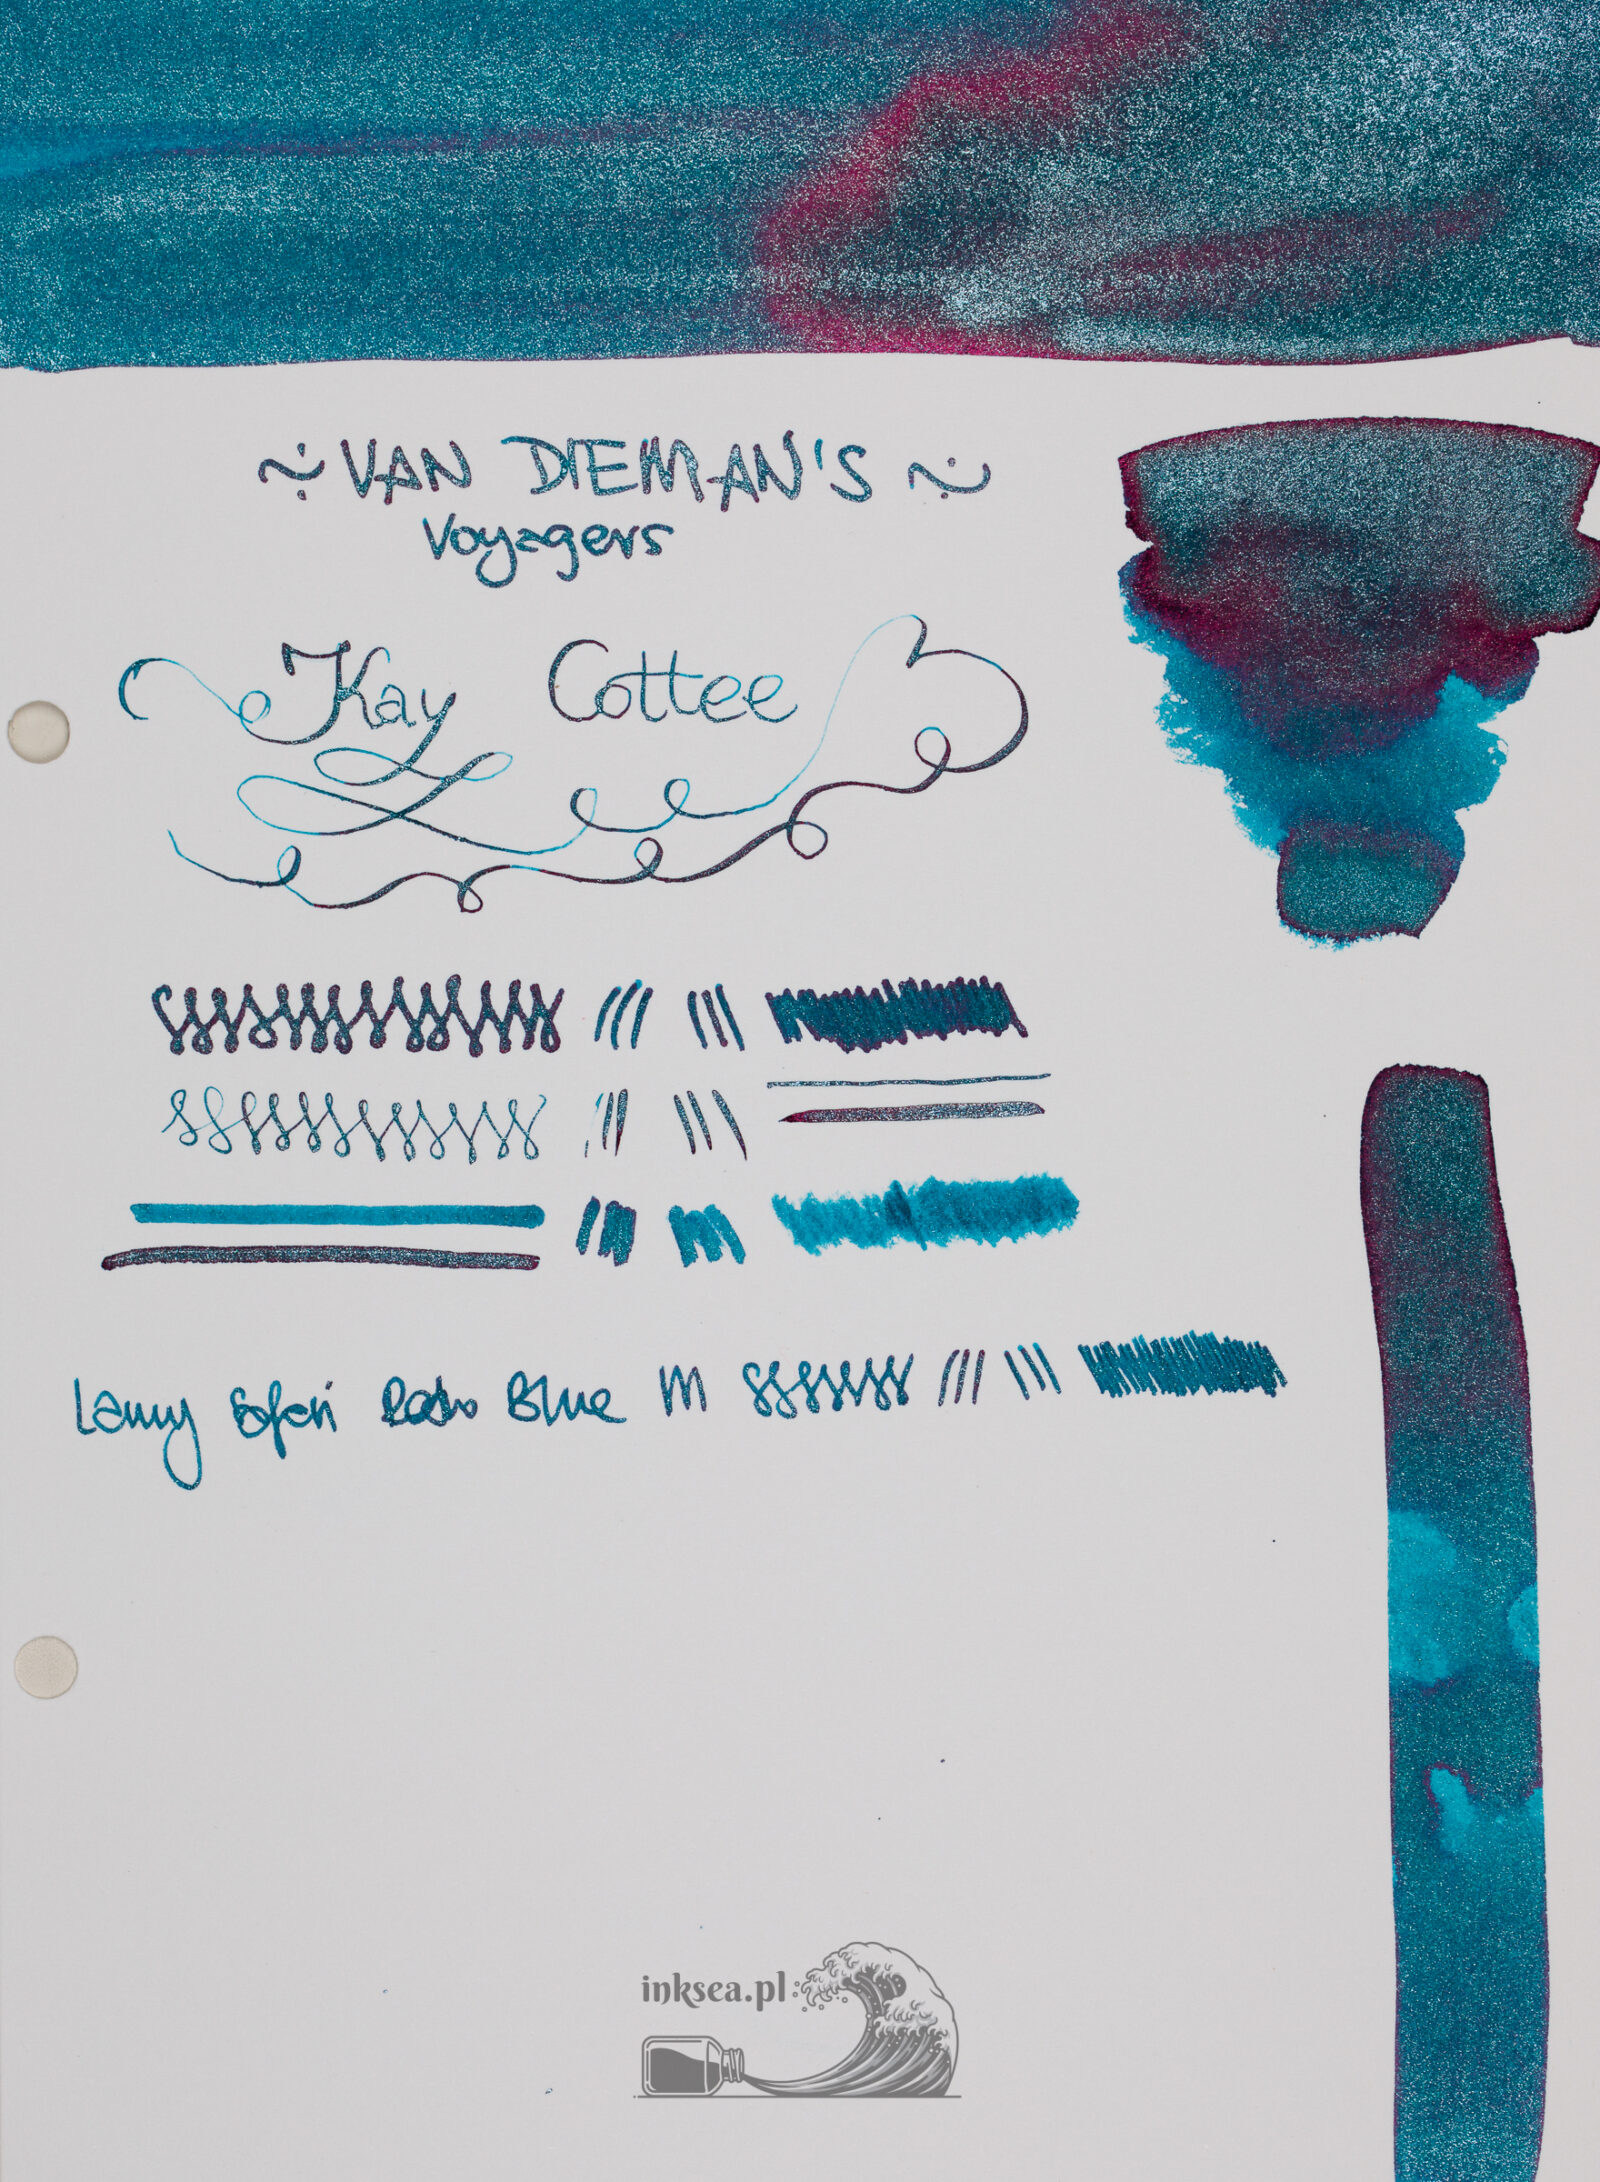 ~ VAN DIEMAN'S ~
Voyagers
Kay Cottee
Lamy Safari Retro Blue M
inksea.pl